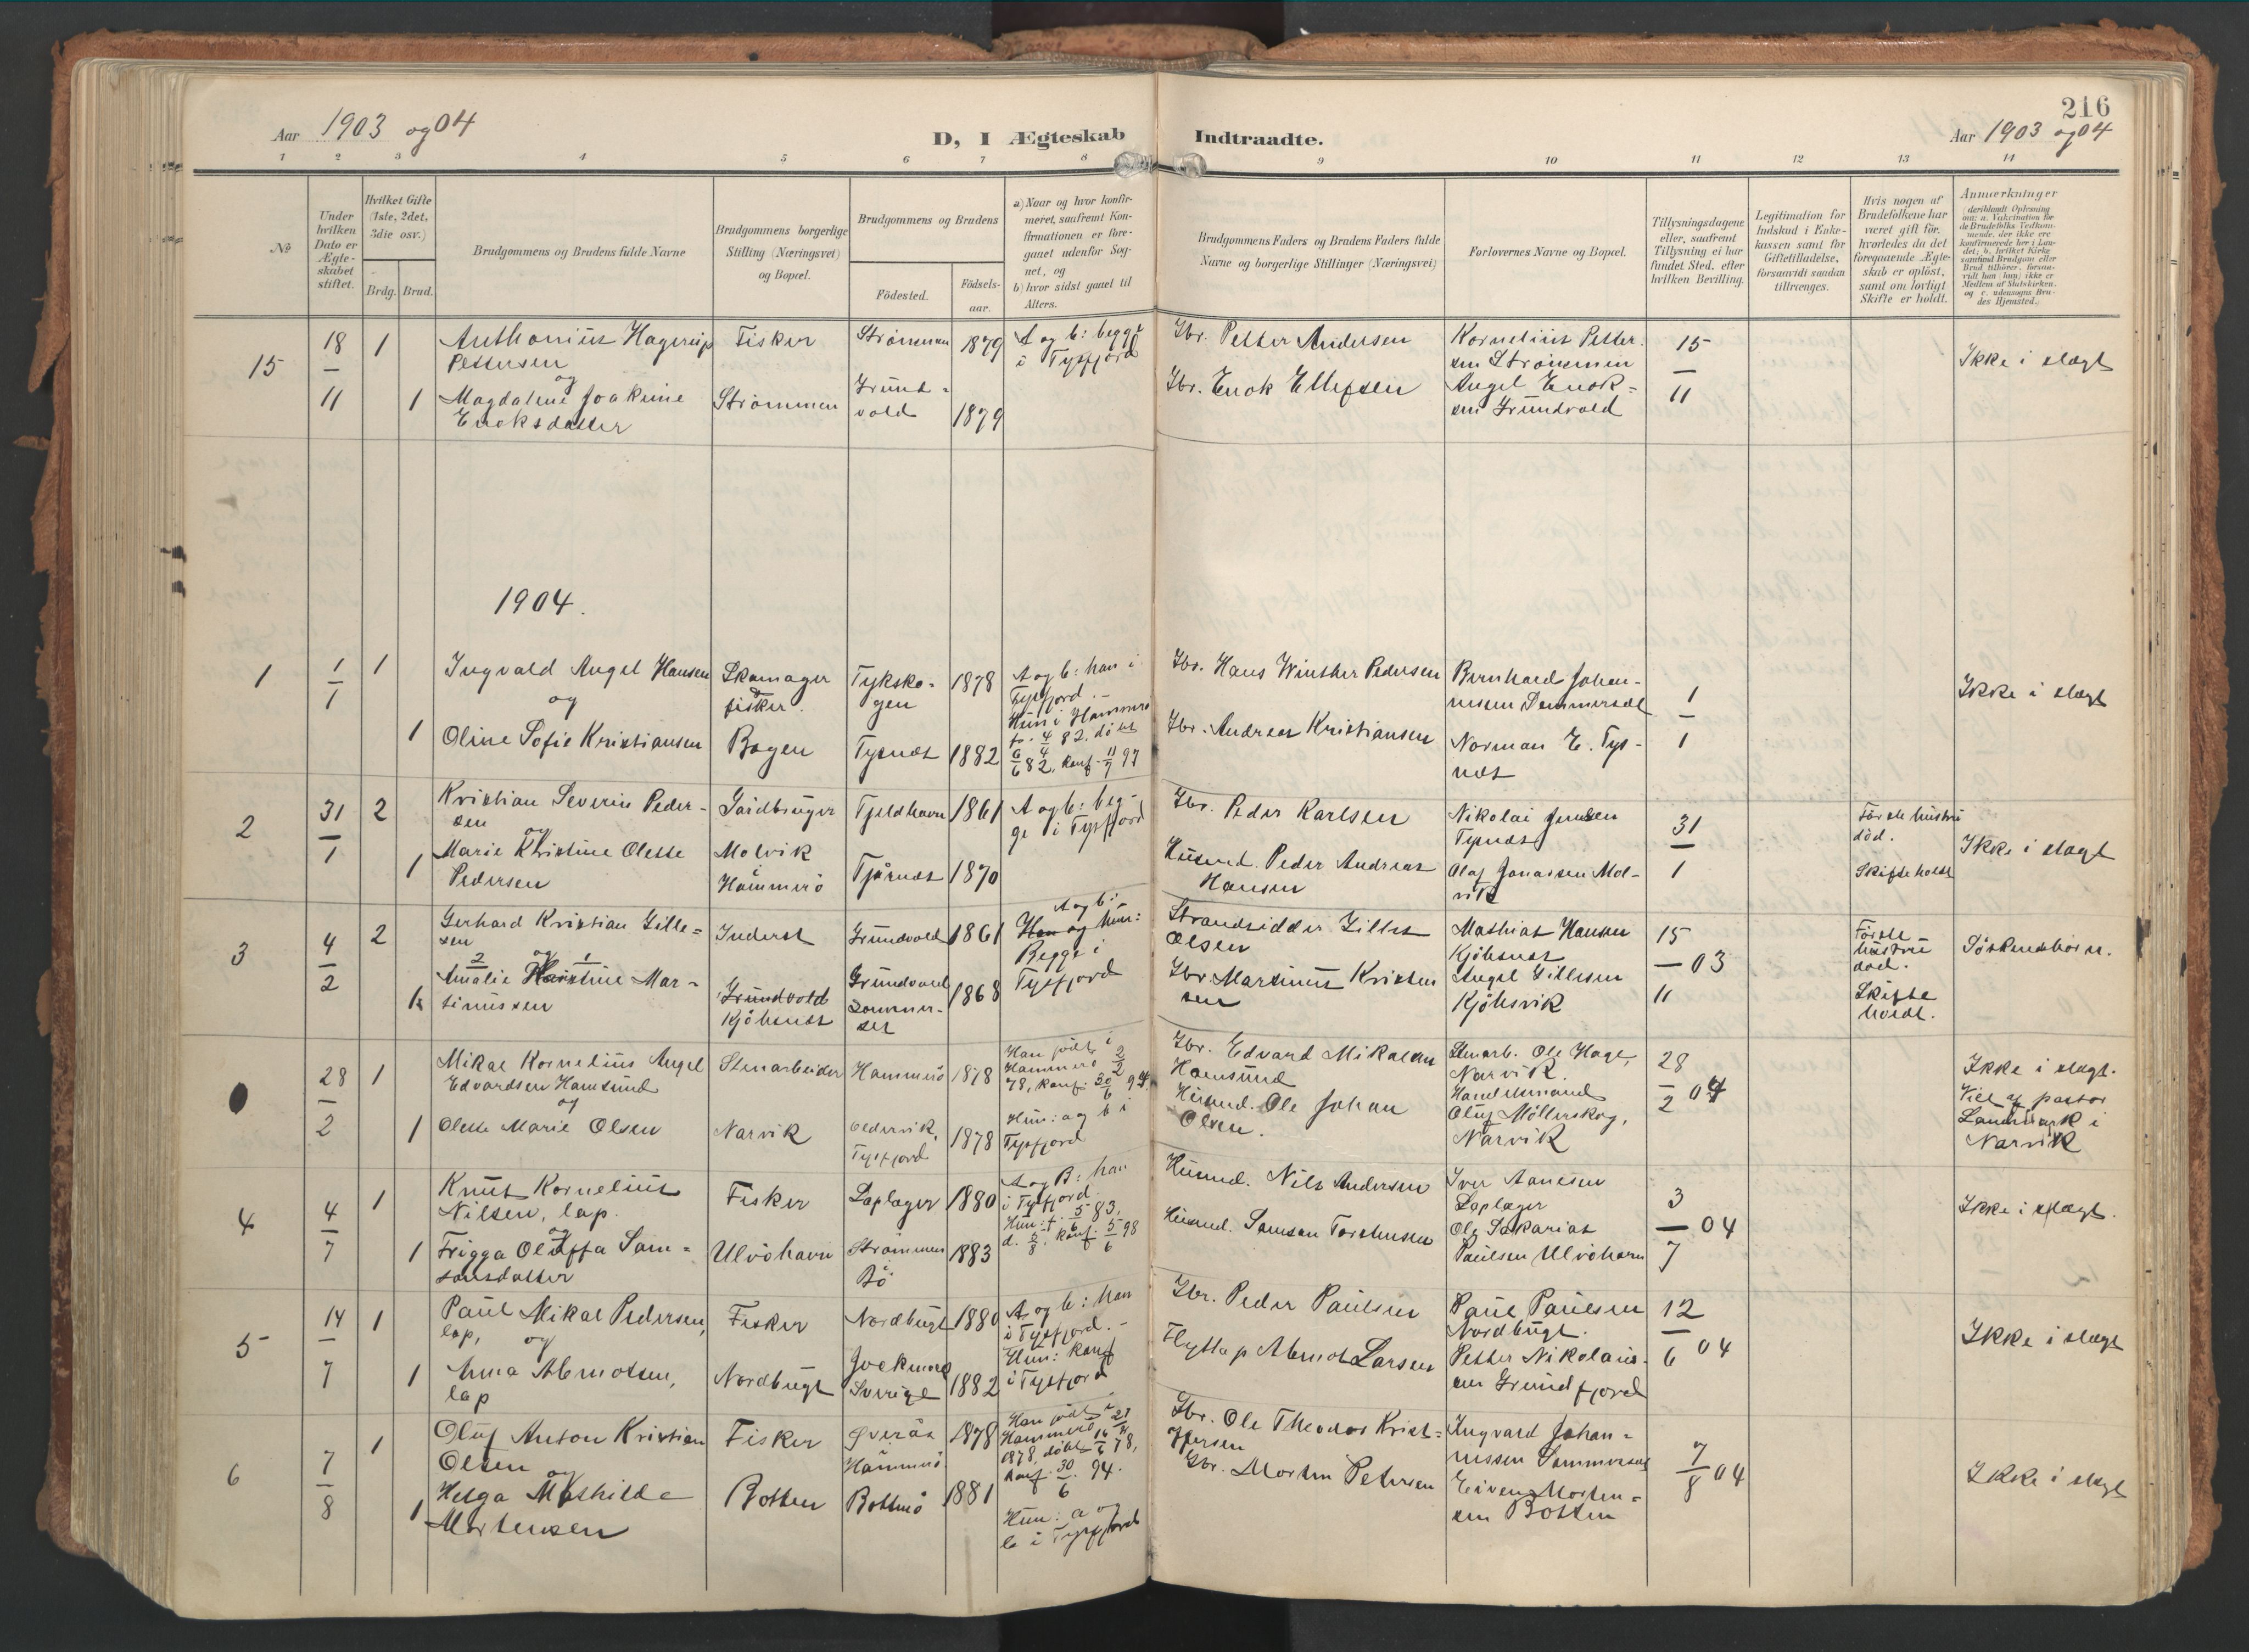 216
Aar 1903 og 04
D, I Ægteskab Indtraadte.
Aar 1903 og 04
1 2 3 4 5 6 7 8 9 10 11 12 13 14
No
Under hvilken Dato er Ægteskabet stiftet.
Hvilket Gifte (1ste, 2det, 3die osv.)
Brdg. Brud.
Brudgommens og Brudens fulde Navne
Brudgommens borgerlige Stilling (Næringsvei) og Bopæl.
Brudgommens og Brudens
Fødested.
Fødselsaar.
a) Naar og hvor konfirmeret, saafremt Konfirmationen er foregaaet udenfor Sognet, og
b) hvor sidst gaaet til Alters.
Brudgommens Faders og Brudens Faders fulde Navne og borgerlige Stillinger (Næringsvei)
Forlovernes Navne og Bopæl.
Tillysningsdagene eller, saafremt Tillysning ei har fundet Sted, efter hvilken Bevilling.
Legitimation for Indskud i Enkekassen samt for Giftetilladelse, forsaavidt saadan tiltrænges.
Hvis nogen af Brudefolkene har været gift før, hvorledes da det foregaaende Ægteskab er opløst, samt om lovligt Skifte er holdt.
Anmærkninger
15
18/11
1
Anthonius Hagerup
Pettersen
og
1 Magdalene Joakime
Enoksdatter
Fisker
Strømmen
Strømmen 1879
Grund-
vold 1879
A og b: begge
i Tysfjord
Gbr. Petter Andersen
Gbr. Enok Ellefsen
Kornelius Petter-
sen Strømmen
Angel Enok-
sen Grundvold
15/11
Ikke i slægt
1904.
1
1/1
1
Ingvald Angel Hansen
og
1 Oline Sofie Kristiansen
Skomager
fisker.
Bogen
Tyksko-
gen 1878
Tysnes 1882
A og b: han i
Tysfjord.-
Hun i Hammerø
f. 4/4 82. døbt
6/6 82, konf. 11/7 97
Gbr. Hans Winther Pedersen
Gbr. Andreas Kristiansen
Bernhard Johan-
nessen Sommersæt
Norman E. Tys-
næs
1/1
Ikke i slægt
2
31/1
2
Kristian Severin Peder-
sen
og
1 Marie Kristine Olette
Pedersen
Gaardbruger
Molvik
Hammerø
Tjeldhavn 1861
Tjårnæs 1870
A og b: beg-
ge i Tysfjord
Gbr. Peder Karlsen
Husmd. Peder Andreas
Hansen
Nikolai Jensen
Tysnæs
Olaf Jonassen Mol-
vik
31/1
Første hustru
død.
Skifte holdt
Ikke i slægt
3
4/2
2
Gerhard Kristian Gille-
sen
og
Amalie Kristine Mar-
tinussen
Inderst
Grundvold
Kjøbsnæs
Grundvold 1861
Grundvold
Sommer-
set 1868
A og b:
Han og hun:
Begge i
Tysfjord
Strandsidder Gilles
Olsen
Gbr Martinus Kristen
sen
Mathias Hansen
Kjøbsnæs
Angel Gillesen
Kjøbsvik
15/11 03
Første
hustru
død.
Skifte
holdt.
Søskenebørn.
28/2
1
Mikal Kornelius Angel
Edvardsen Hamsund
og
1 Olette Marie Olsen
Stenarbeider
Narvik
Hammerø 1878
Oldervik,
Tysfjord 1878
Han født i
Hammerø 2/2
78, konf. 30/6 94.
Hun: a og b i
Tysfjord
Gbr. Edvard Mikalsen
Hamsund
Husmd. Ole Johan
Olsen.
Stenarb. Ole Hage,
Narvik.
Handelsmand
Oluf Møllerskog,
Narvik
28/2 04
Ikke i slægt.
Viet af pastor
Landmark i
Narvik
4
4/7
1
Knut Kornelius
Nilsen, lap.
og
1 Frigga Oluffa Sam-
sonsdatter
Fisker
Ulvøhavn
Laplager 1880
Strømmen
Bø 1883
A og B: han
i Tysfjord.
Hun: f. 5/6 83,
d. 5/8, konf. 5/6 98
Husmd. Nils Andersen
Husmd. Samson Torstensen
Iver Aanesen
Laplager
Ole Sakarias
Paulsen Ulvøhavn
3/7 04
Ikke i slægt.
5
14/7
1
Paul Mikal Pedersen,
lap, og
1 Anna Abmotsen,
lap
Fisker
Nordbugt
Nordbugt 1880
Jockmock
Sverige 1882
A og b: han
i Tysfjord.-
Hun: konf
i Tysfjord
Gbr. Peder Paulsen
Flytlap Abmot Larsen
Paul Paulsen
Nordbugt.
Petter Nikolais-
sen Grundfjord
12/6 04
Ikke i slægt
6
7/8
1
Oluf Anton Kristian
Olsen
og
1 Helga Mathilde
Mortensen
Fisker
Botten
Øveraa
Hammerø 1878
Botten 1881
Han født i
Hammerø
1878, døbt 16/6 78,
konf. 30/6 94.
Hun: a og
b i Tysfjord
Gbr. Ole Theodor Krist-
offersen
Gbr. Morten Petersen
Ingvard Johan-
nessen Sommersæt
Eiven Morten-
sen Botten
7/8 04
Ikke i slægt